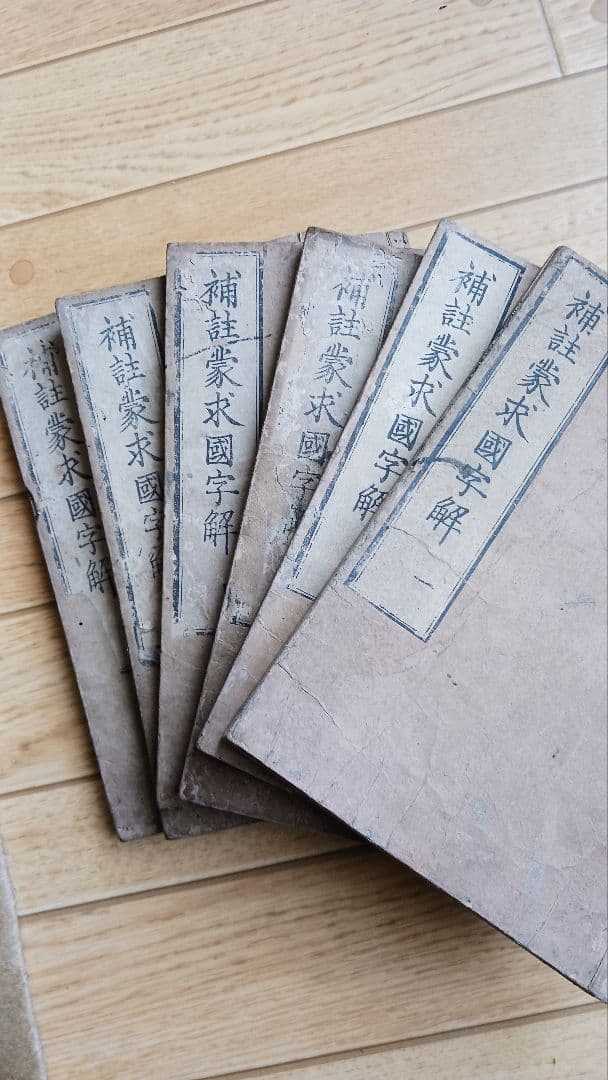 補註蒙求國字解
補註蒙求國字
補註蒙求國字解
補註蒙求國字
補註蒙求國字解
補註蒙求國字解 一